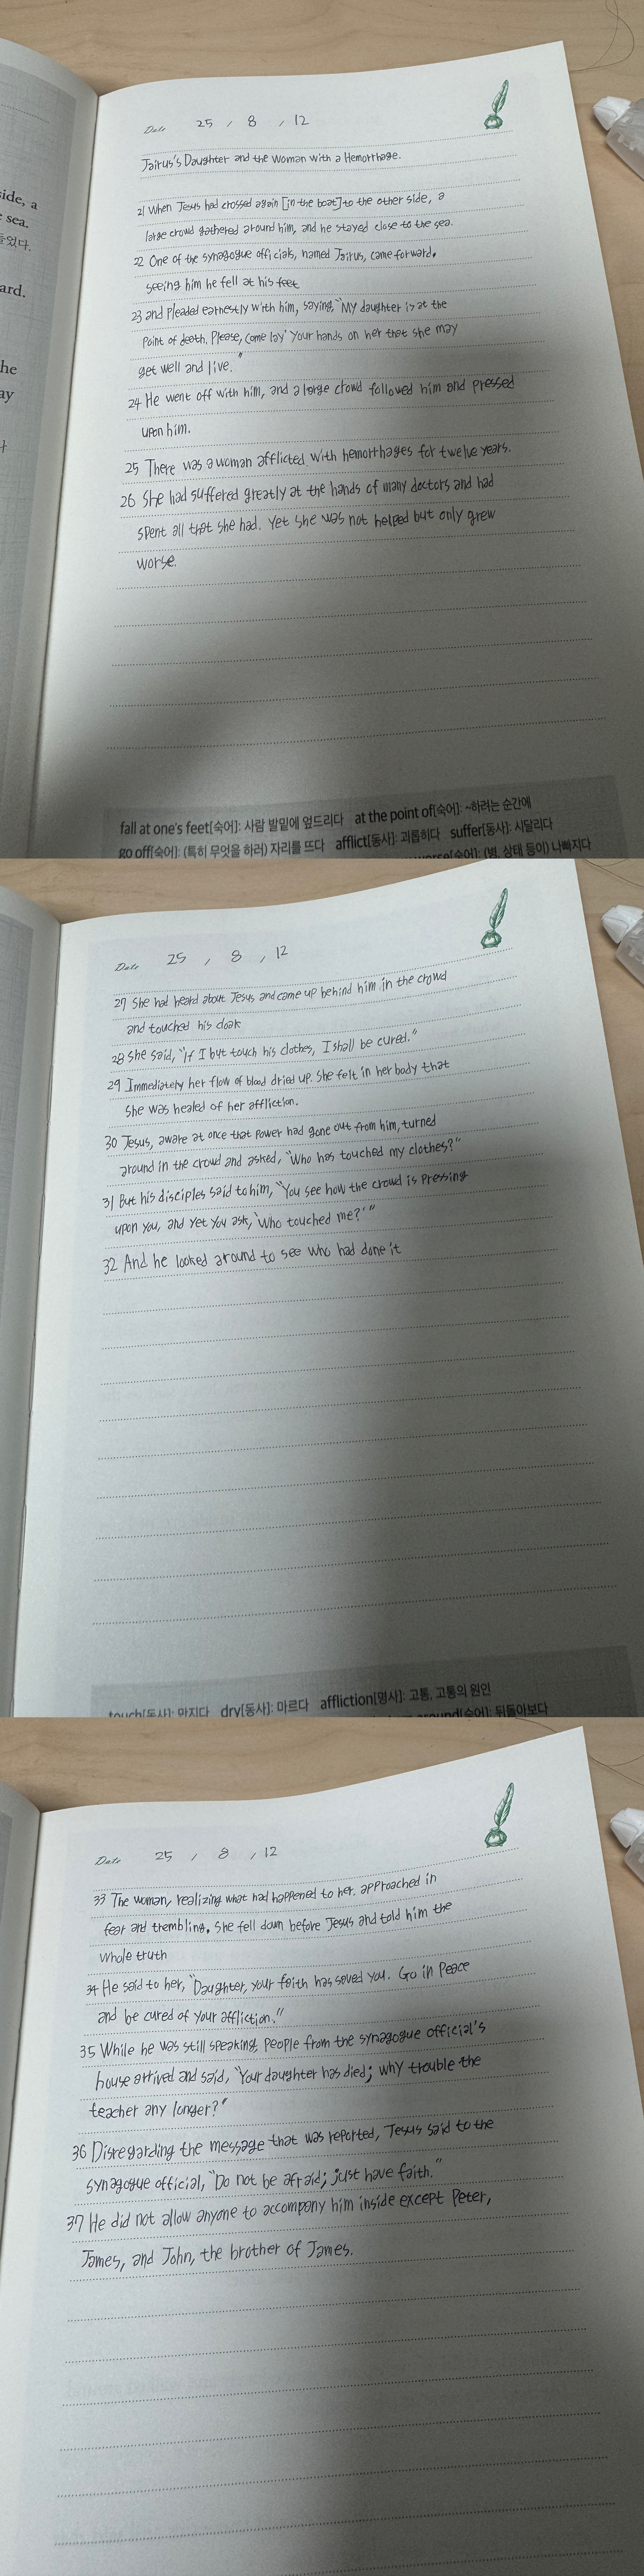 side, a
sea.
들었다.
ard.
he
ay
Date 25 / 8 / 12
Jairus's Daughter and the Woman with a Hemorrhage.
21 When Jesus had crossed again [in the boat] to the other side, a
large crowd gathered around him, and he stayed close to the sea.
22 One of the synagogue officials, named Jairus, came forward.
seeing him he fell at his feet
23 and pleaded earnestly with him, saying, "My daughter is at the
point of death. Please, come lay your hands on her that she may
get well and live."
24 He went off with him, and a large crowd followed him and pressed
upon him.
25 There was a woman afflicted with hemorrhages for twelve years.
26 She had suffered greatly at the hands of many doctors and had
spent all that she had. Yet she was not helped but only grew
worse.
fall at one's feet[숙어]: 사람 발밑에 엎드리다 at the point of[숙어]: ~하려는 순간에
go off[숙어]: (특히 무엇을 하러) 자리를 뜨다 afflict[동사]: 괴롭히다 suffer[동사]: 시달리다
worse[숙어]: (병, 상태 등이) 나빠지다
Date 25 , 8 , 12
27 She had heard about Jesus and came up behind him in the crowd
and touched his cloak
28 She said, "If I but touch his clothes, I shall be cured."
29 Immediately her flow of blood dried up. She felt in her body that
she was healed of her affliction.
30 Jesus, aware at once that power had gone out from him, turned
around in the crowd and asked, "Who has touched my clothes?"
31 But his disciples said to him, "You see how the crowd is pressing
upon you, and yet you ask, 'Who touched me?'"
32 And he looked around to see who had done it
touch[동사]: 만지다 dry[동사]: 마르다 affliction[명사]: 고통, 고통의 원인
around[숙어]: 뒤돌아보다
Date 25 / 8 / 12
33 The woman, realizing what had happened to her. approached in
fear and trembling. She fell down before Jesus and told him the
whole truth
34 He said to her, "Daughter, your faith has saved you. Go in peace
and be cured of your affliction."
35 While he was still speaking, people from the synagogue official's
house arrived and said, "Your daughter has died; why trouble the
teacher any longer?"
36 Disregarding the message that was reported, Jesus said to the
synagogue official, "Do not be afraid; just have faith."
37 He did not allow anyone to accompany him inside except Peter,
James, and John, the brother of James.